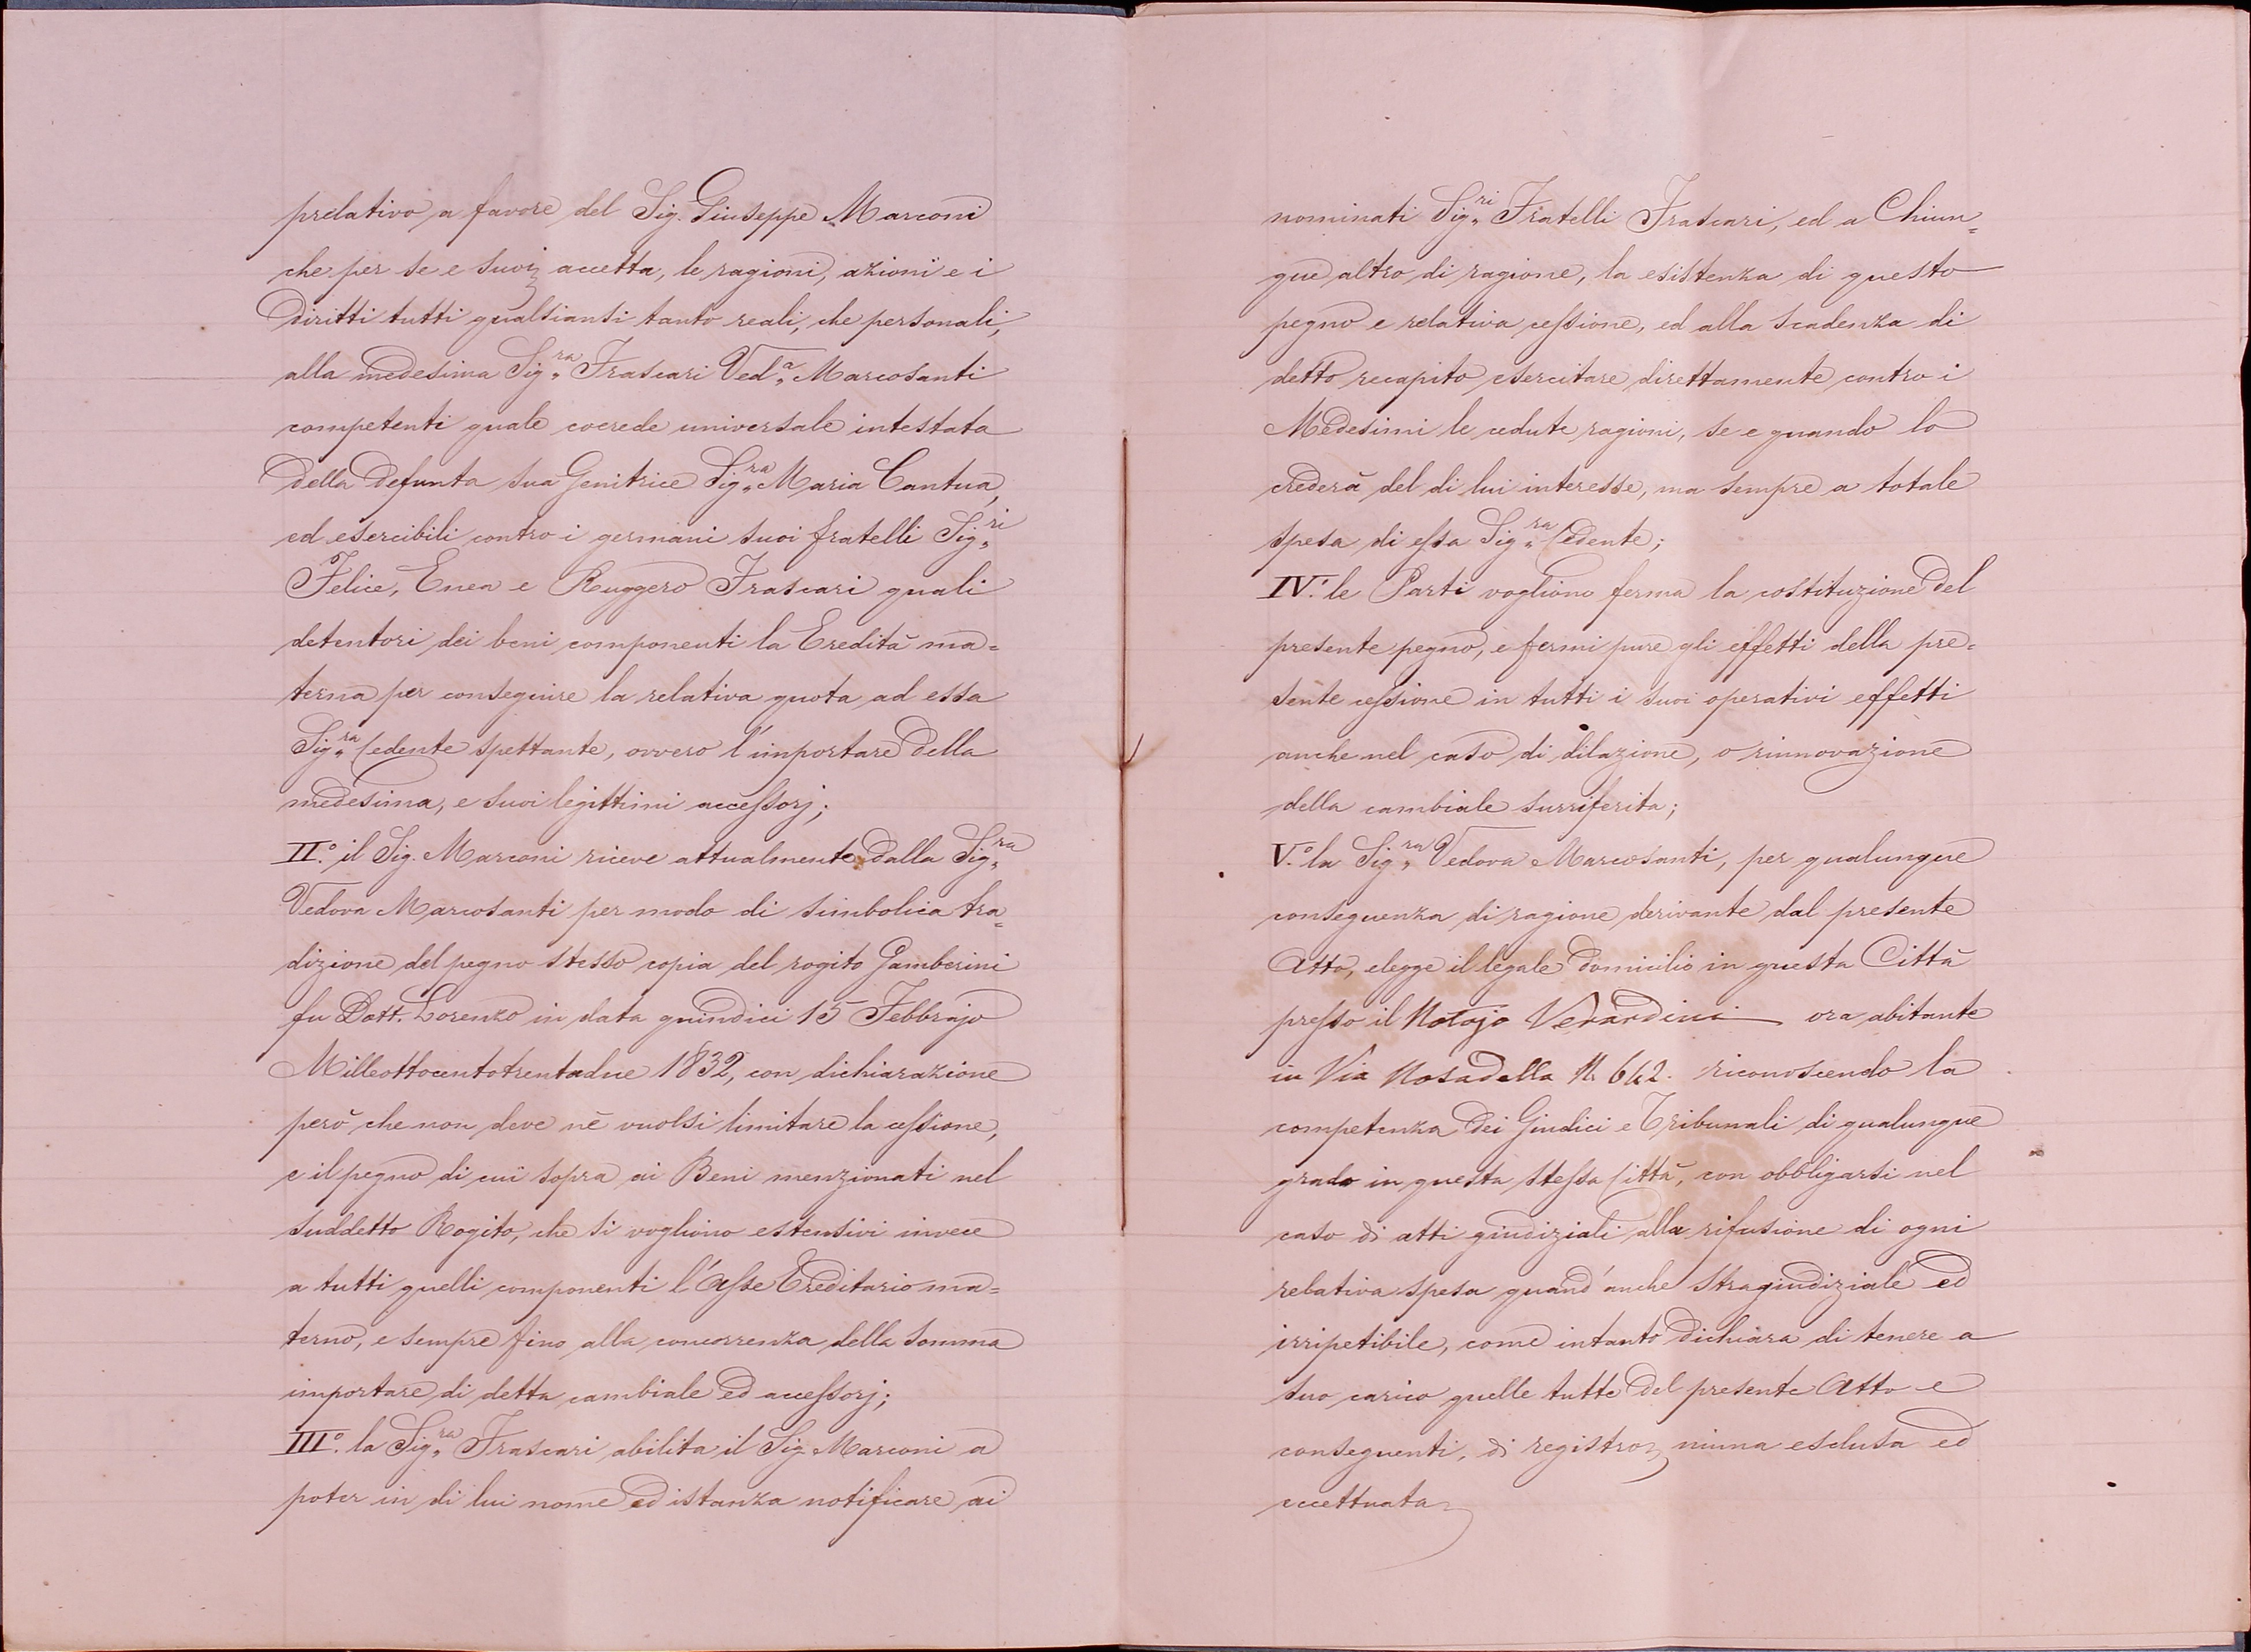 prelativo a favore del Sig. Giuseppe Marconi
che per se e suoi accetta, le ragioni, azioni e i
diritti tutti qualsiansi tanto reali, che personali,
alla medesima Sig.ra Frascari Ved.a Marcosanti
competenti quale coerede universale intestata
della defunta sua Genitrice Sig.ra Maria Cantua,
ed esercibili contro i germani suoi fratelli Sig.ri
Felice, Enea e Ruggero Frascari quali
detentori dei beni componenti la Eredità ma=
terna per conseguire la relativa quota ad essa
Sig.ra Cedente spettante, ovvero l'importare della
medesima, e suoi legittimi accessorj;
II.° il Sig. Marconi riceve attualmente dalla Sig.ra
Vedova Marcosanti per modo di simbolica tra=
dizione del pegno stesso copia del rogito Gamberini
fu Dott. Lorenzo in data quindici 15 Febbrajo
Milleottocentotrentadue 1832, con dichiarazione
però che non deve nè vuolsi limitare la cessione,
e il pegno di cui sopra ai Beni menzionati nel
suddetto Rogito, che si vogliono estensivi invece
a tutti quelli componenti l'Asse Ereditario ma=
terno, e sempre fino alla concorrenza della somma
importare di detta cambiale ed accessorj;
III.° la Sig.ra Frascari abilita il Sig. Marconi a
poter in di lui nome ed istanza notificare ai
nominati Sig.ri Fratelli Frascari, ed a Chiun=
que altro di ragione, la esistenza di questo
pegno e relativa cessione, ed alla scadenza di
detto recapito esercitare direttamente contro i
Medesimi le cedute ragioni, se e quando lo
crederà del di lui interesse, ma sempre a totale
spesa di essa Sig.ra Cedente;
IV.° le Parti vogliono ferma la costituzione del
presente pegno, e fermi pure gli effetti della pre=
sente cessione in tutti i suoi operativi effetti
anche nel caso di dilazione, o rinnovazione
della cambiale surriferita;
V.° la Sig.ra Vedova Marcosanti, per qualunque
conseguenza di ragione derivante dal presente
Atto, elegge il legale domicilio in questa Città
presso il Notajo Verardini ora abitante
in Via Nosadella N. 642. riconoscendo la
competenza dei Giudici e Tribunali di qualunque
grado in questa stessa Città, con obbligarsi nel
caso di atti giudiziali alla rifusione di ogni
relativa spesa quand'anche stragiudiziale ed
irripetibile, come intanto dichiara di tenere a
suo carico quelle tutte del presente Atto e
conseguenti, di registro, niuna esclusa ed
eccettuata